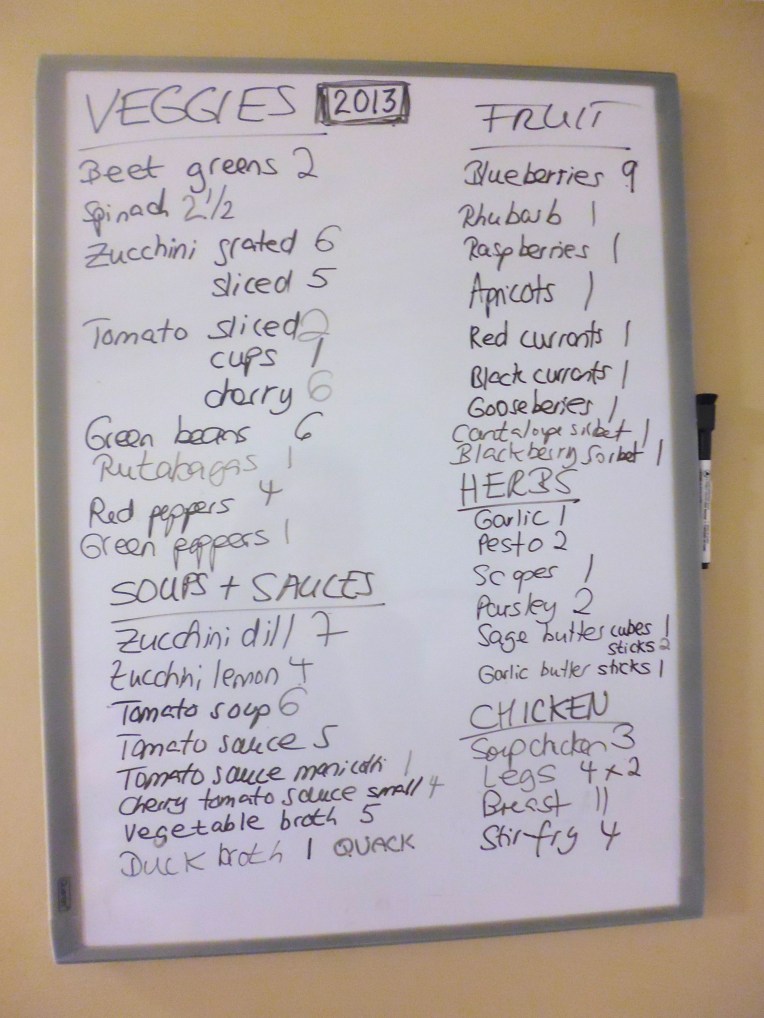 VEGGIES 2013
Beet greens 2
Spinach 2 1/2
Zucchini grated 6
sliced 5
Tomato sliced 2
cups 1
cherry 6
Green beans 6
Rutabagas 1
Red peppers 4
Green peppers 1
SOUPS + SAUCES
Zucchini dill 7
Zucchni lemon 4
Tomato soup 6
Tomato sauce 5
Tomato sauce manicotti 1
Cherry tomato sauce small 4
Vegetable broth 5
Duck broth 1 QUACK
FRUIT
Blueberries 9
Rhubarb 1
Raspberries 1
Apricots 1
Red currants 1
Black currants 1
Gooseberies 1
Cantaloupe sorbet 1
Blackberry Sorbet 1
HERBS
Garlic 1
Pesto 2
Scapes 1
Parsley 2
Sage butter cubes 1
sticks 2
Garlic butter sticks 1
CHICKEN
Soup chicken 3
Legs 4 x 2
Breast 11
Stirfry 4